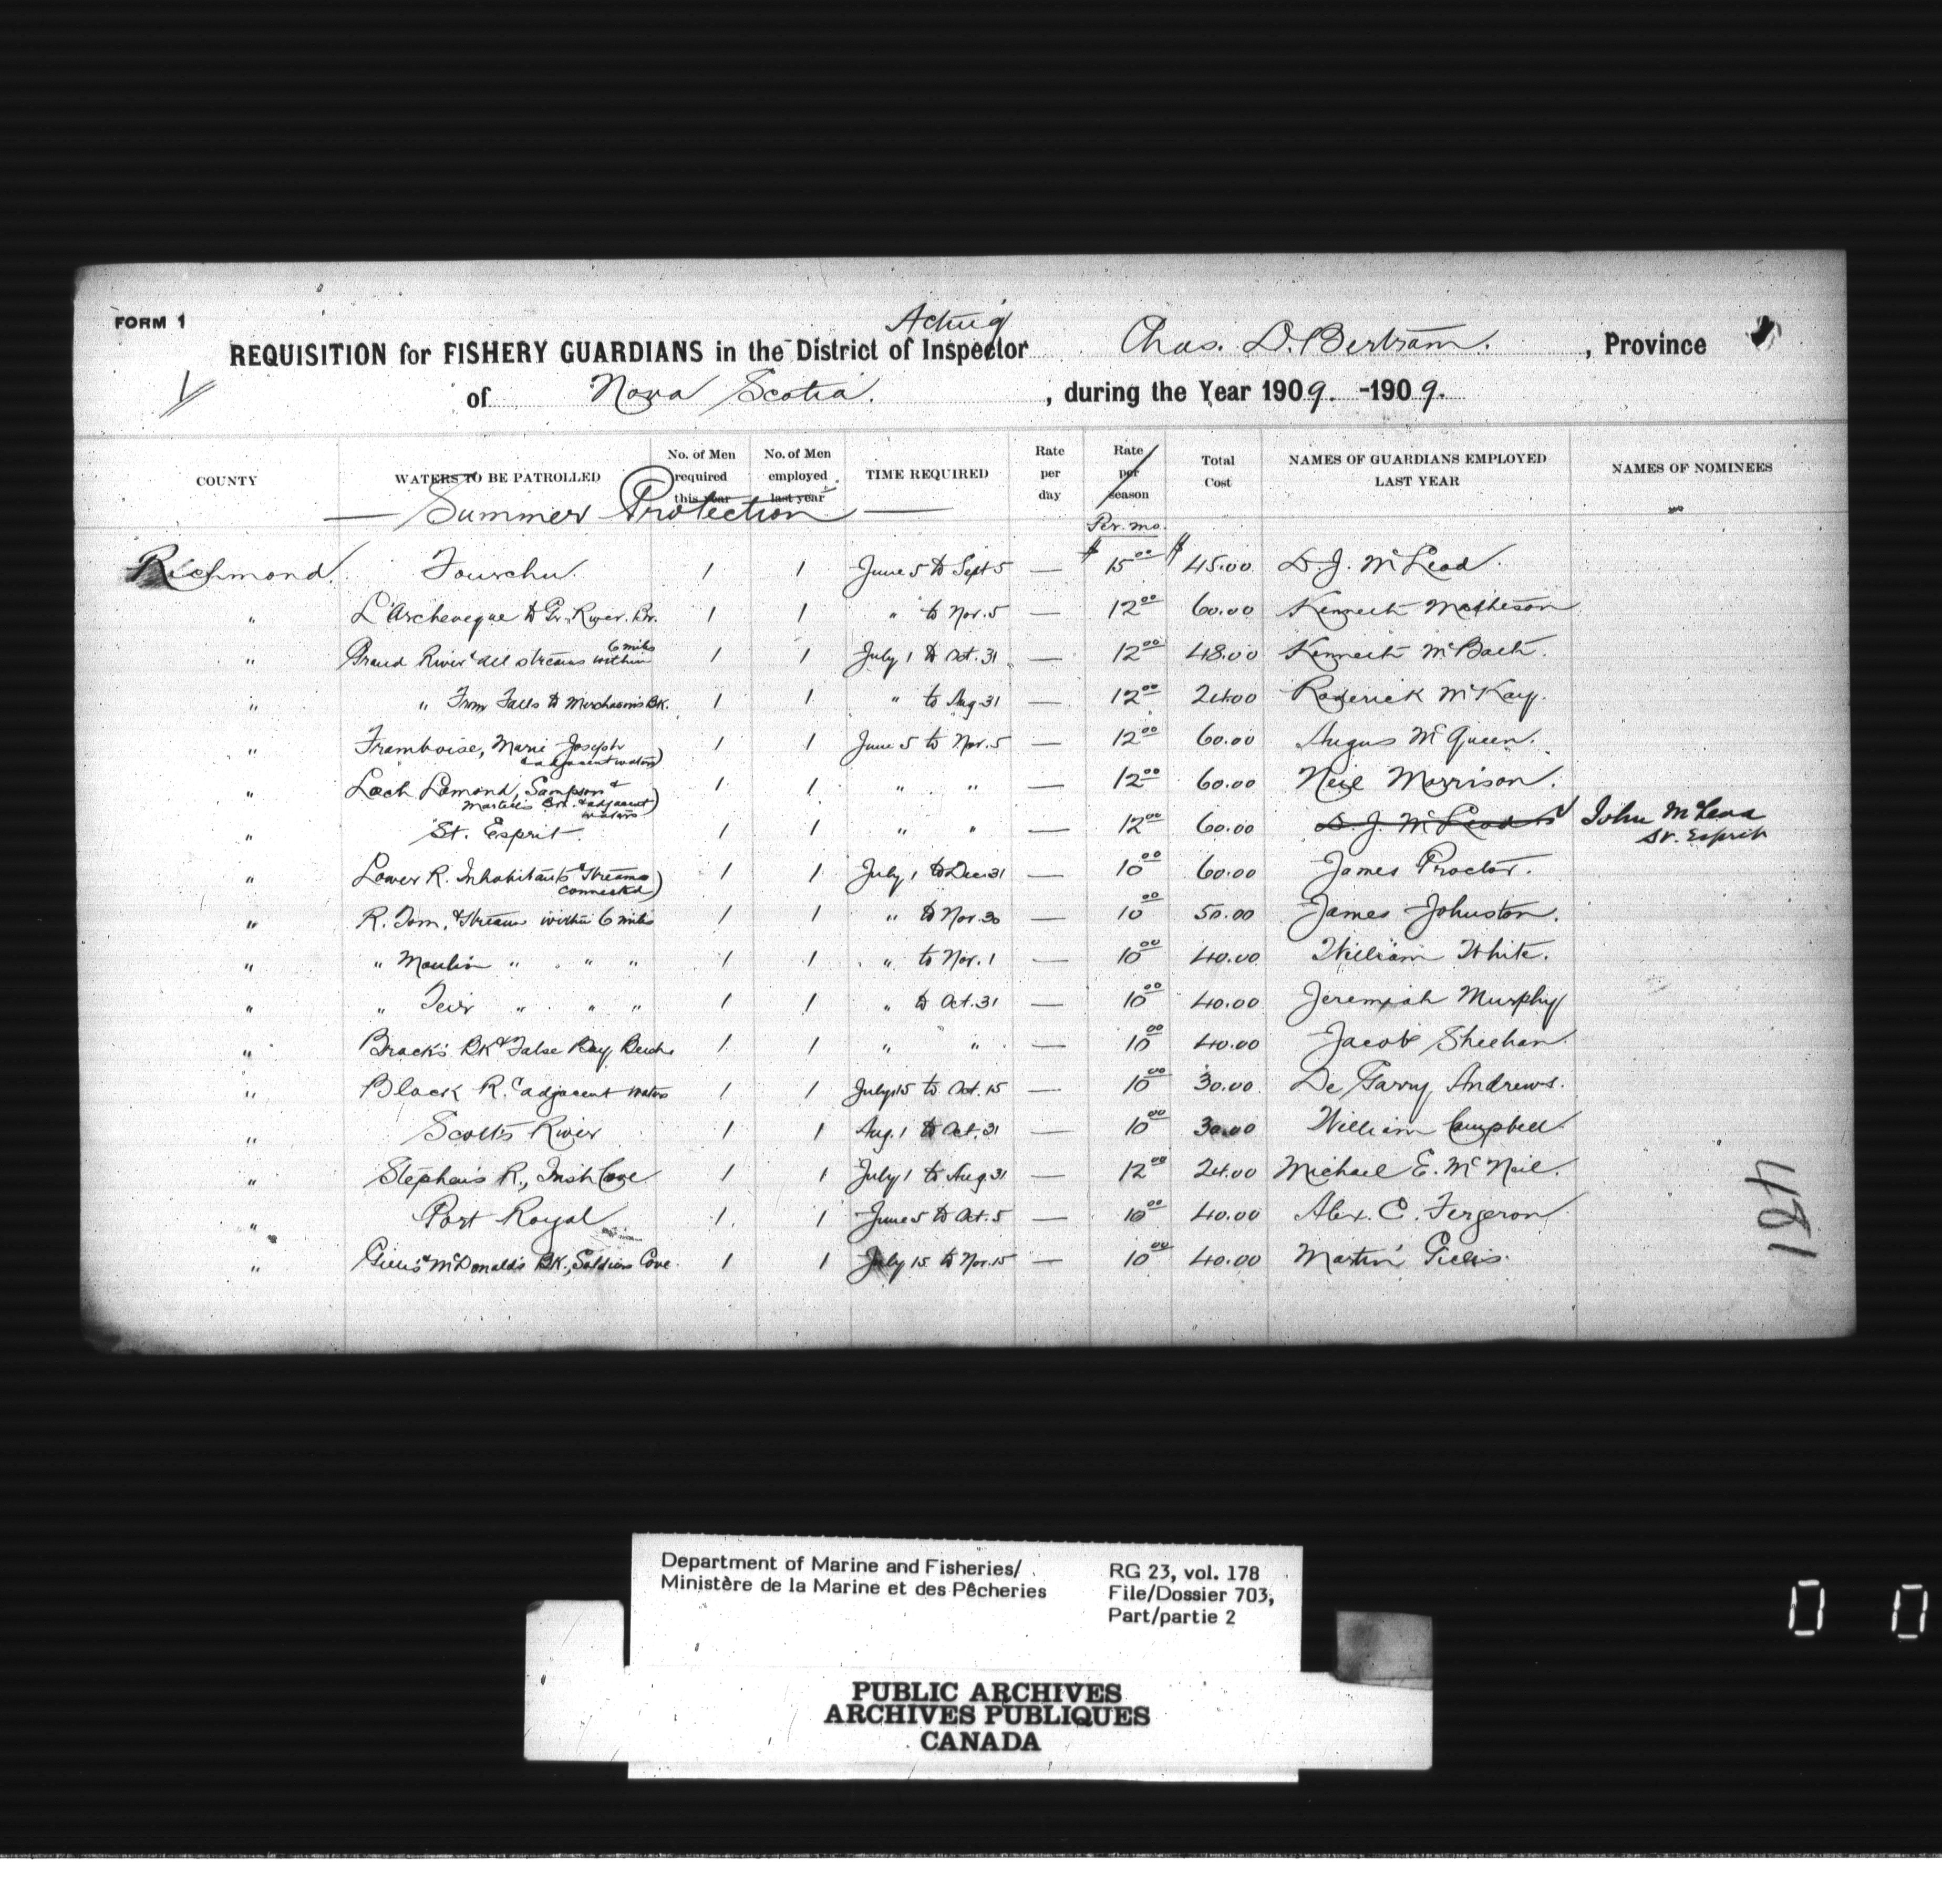 FORM 1
Acting
REQUISITION for FISHERY GUARDIANS in the District of Inspector Chas. D. Bertram. , Province
of Nova Scotia. , during the Year 1909. -1909.
COUNTY WATERS TO BE PATROLLED No. of Men required this year No. of Men employed last year TIME REQUIRED Rate per day Rate per season Total Cost NAMES OF GUARDIANS EMPLOYED LAST YEAR NAMES OF NOMINEES
— Summer Protection —
Per. mo.
Richmond. Fourchu. 1 1 June 5 to Sept 5 — $ 15 00 $ 45.00 D. J. McLeod.
" L'Archeveque to Gr. River. Br. 1 1 " to Nov. 5 — 12 00 60.00 Kenneth Matheson
" Grand River & all streams within 6 miles 1 1 July 1 to Oct. 31 — 12 00 48.00 Kenneth McBath.
" " From Falls to Merchasin's Bk. 1 1 " to Aug 31 — 12 00 24.00 Roderick McKay.
" Framboise, Marie Joseph & adjacent waters) 1 1 June 5 to Nov. 5 — 12 00 60.00 Angus McQueen.
" Loch Lomond, Sampson & Martells Bk. & adjacent waters) 1 1 " " — 12 00 60.00 Neil Morrison.
" St. Esprit. 1 1 " " — 12 00 60.00 D. J. McLeod John McLeod St. Esprit
" Lower R. Inhabitants & Streams connected) 1 1 July 1 to Dec 31 10 00 60.00 James Proctor.
" R. Tom, & Streams within 6 miles 1 1 " to Nov. 30 — 10 00 50.00 James Johnston.
" " Moulin " " " 1 1 " to Nov. 1 — 10 00 40.00 William White.
" " Teir " " " 1 1 " to Oct. 31 — 10 00 40.00 Jeremiah Murphy
" Brack's Bk & False Bay Beach 1 1 " " — 10 00 40.00 Jacob Sheehan
" Black R. & adjacent waters 1 1 July 15 to Oct. 15 — 10 00 30.00 De Garry Andrews.
" Scotts River 1 1 Aug. 1 to Oct. 31 — 10 00 30.00 William Campbell.
" Stephen's R., Irish Cove 1 1 July 1 to Aug 31 — 12 00 24.00 Michael E. McNeil.
" Port Royal 1 1 June 5 to Oct. 5 — 10 00 40.00 Alex. C. Fergeron
" Gillis & McDonald's Bk., Soldiers Cove. 1 1 July 15 to Nov. 15 — 10 00 40.00 Martin Gillis.
481
Department of Marine and Fisheries/
Ministère de la Marine et des Pêcheries
RG 23, vol. 178
File/Dossier 703,
Part/partie 2
PUBLIC ARCHIVES
ARCHIVES PUBLIQUES
CANADA
0 0